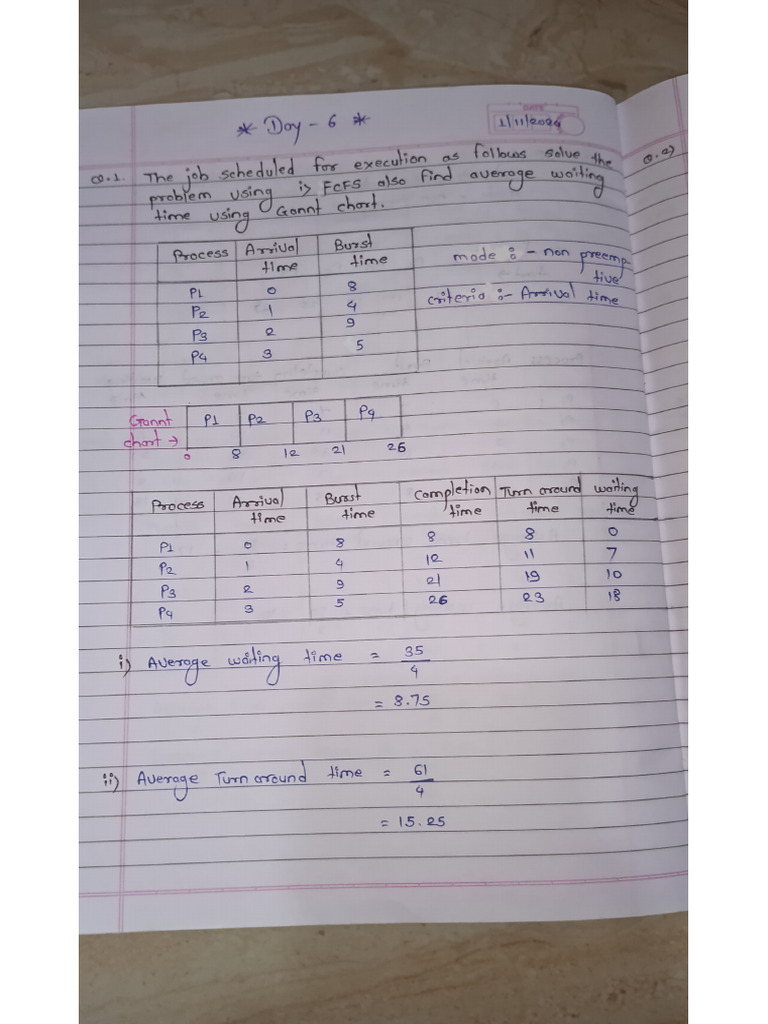 * Day - 6 *
DATE
1/11/2024
Q.1. The job scheduled for execution as follows solve the
problem using i> FCFS also find average waiting
time using Gannt chart.
Q.2)
Process Arrival time Burst time
P1 0 8
P2 1 4
P3 2 9
P4 3 5
mode :- non preemp
tive
criteria :- Arrival time
Gannt chart →
P1 P2 P3 P4
0 8 12 21 26
Process Arrival time Burst time Completion time Turn around time waiting time
P1 0 8 8 8 0
P2 1 4 12 11 7
P3 2 9 21 19 10
P4 3 5 26 23 18
i) Average waiting time = 35
4
= 8.75
ii) Average Turn around time = 61
4
= 15.25